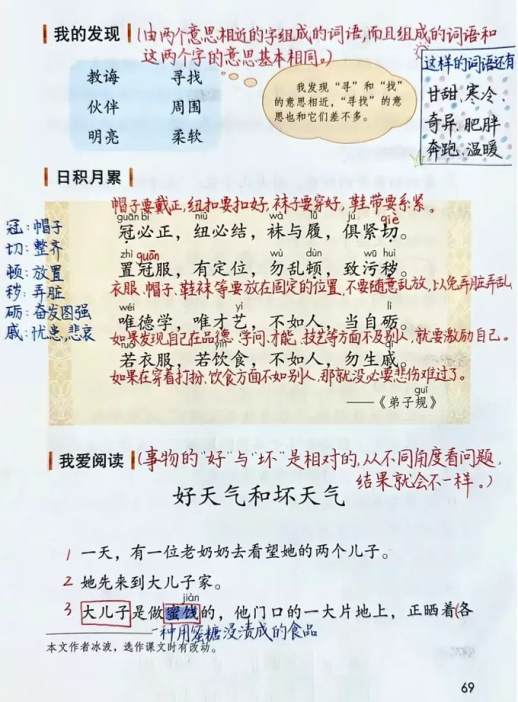 我的发现(由两个意思相近的字组成的词语,而且组成的词语和
这两个字的意思基本相同。)
教诲 寻找
伙伴 周围
明亮 柔软
我发现“寻”和“找”
的意思相近,“寻找”的意
思也和它们差不多。
这样的词语还有
甘甜、寒冷、
奇异、肥胖
奔跑、温暖
日积月累
帽子要戴正,纽扣要扣好,袜子要穿好,鞋带要系紧。
guān bì niǔ wà lǚ jù qiè
冠必正,纽必结,袜与履,俱紧切。
zhì guān wù dùn wū huì
置冠服,有定位,勿乱顿,致污秽。
衣服、帽子、鞋袜等要放在固定的位置,不要随意乱放,以免弄脏弄乱
wéi yì lì
唯德学,唯才艺,不如人,当自砺。
如果发现自己在品德、学问、才能、技艺等方面不及别人,就要激励自己。
ruò qī
若衣服,若饮食,不如人,勿生戚。
如果在穿着打扮、饮食方面不如别人,那就没必要悲伤难过了。
guī
——《弟子规》
冠:帽子
切:整齐
顿:放置
秽:弄脏
砺:奋发图强
戚:忧患,悲哀
我爱阅读(事物的“好”与“坏”是相对的,从不同角度看问题,
结果就会不一样。)
好天气和坏天气
1 一天,有一位老奶奶去看望她的两个儿子。
2 她先来到大儿子家。
jiàn
3 大儿子是做蜜饯的,他门口的一大片地上,正晒着(各
一种用蜜糖浸渍成的食品
本文作者冰波,选作课文时有改动。
69